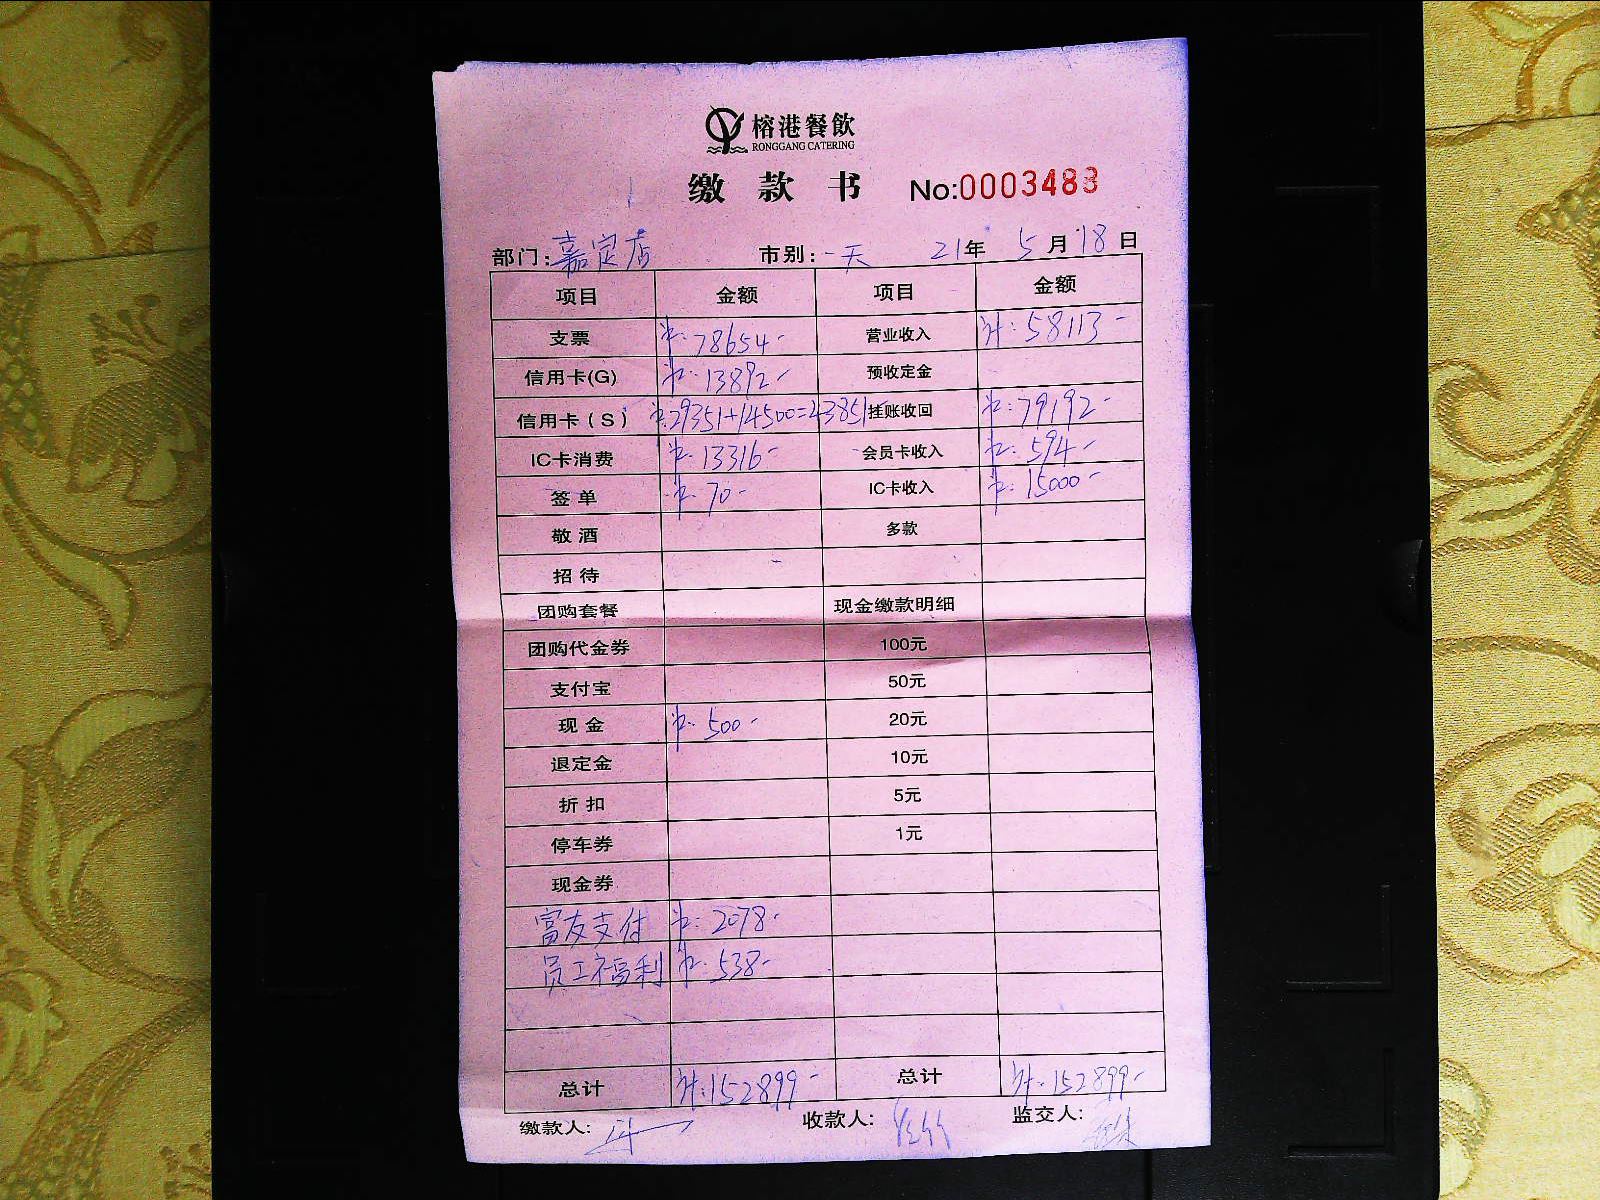 榕港餐飲
RONGGANG CATERING
缴款书 No:0003483
部门:嘉定店 市别:一天 21年 5月18日
项目 金额 项目 金额
支票 78654- 营业收入 计:58113-
信用卡(G) 13892- 预收定金
信用卡(S) 29351+14500=43851- 挂账收回 79192-
IC卡消费 13316- 会员卡收入 594-
签单 70- IC卡收入 15000-
敬酒 多款
招待
团购套餐 现金缴款明细
团购代金券 100元
支付宝 50元
现金 500- 20元
退定金 10元
折扣 5元
停车券 1元
现金券
富友支付 2078-
员工福利 538-
总计 计:152899- 总计 计:152899-
缴款人: 收款人: 监交人: